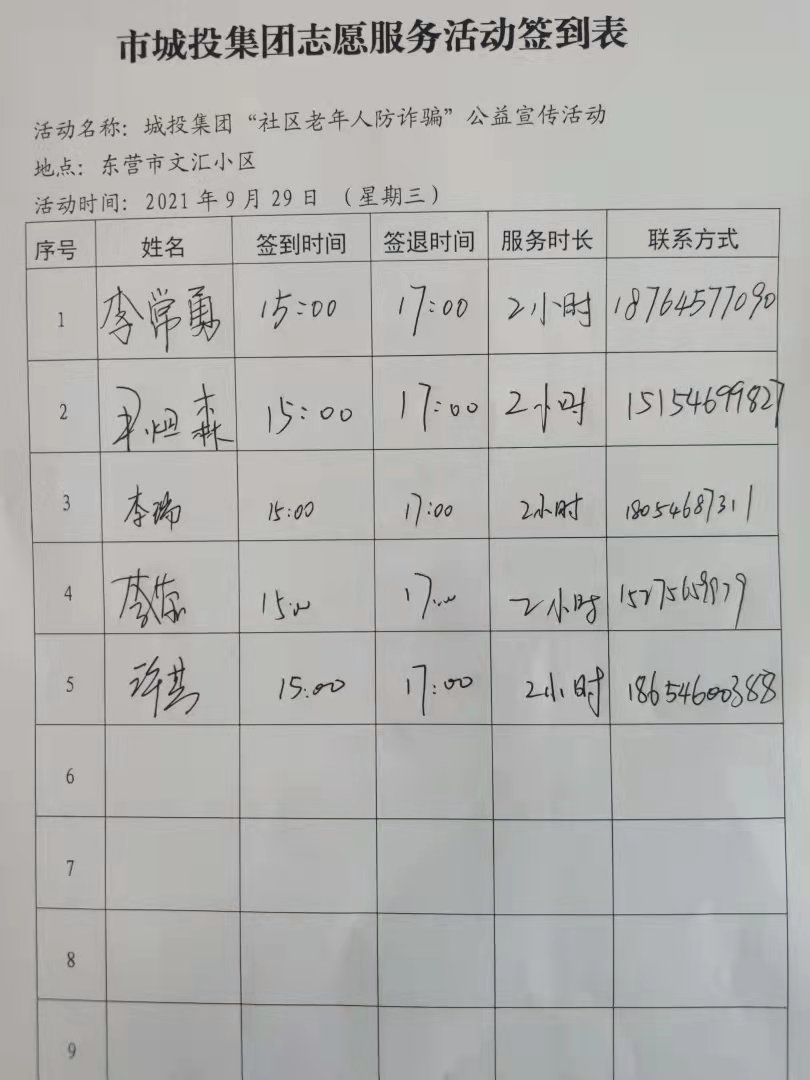 市城投集团志愿服务活动签到表
活动名称：城投集团“社区老年人防诈骗”公益宣传活动
地点：东营市文汇小区
活动时间：2021年9月29日 （星期三）
序号 姓名 签到时间 签退时间 服务时长 联系方式
1 李常勇 15:00 17:00 2小时 18764577090
2 森 15:00 17:00 2小时 15154699827
3 李瑞 15:00 17:00 2小时 18054687311
4 李 15:00 17:00 2小时
5 许其 15:00 17:00 2小时 18654600388
6
7
8
9